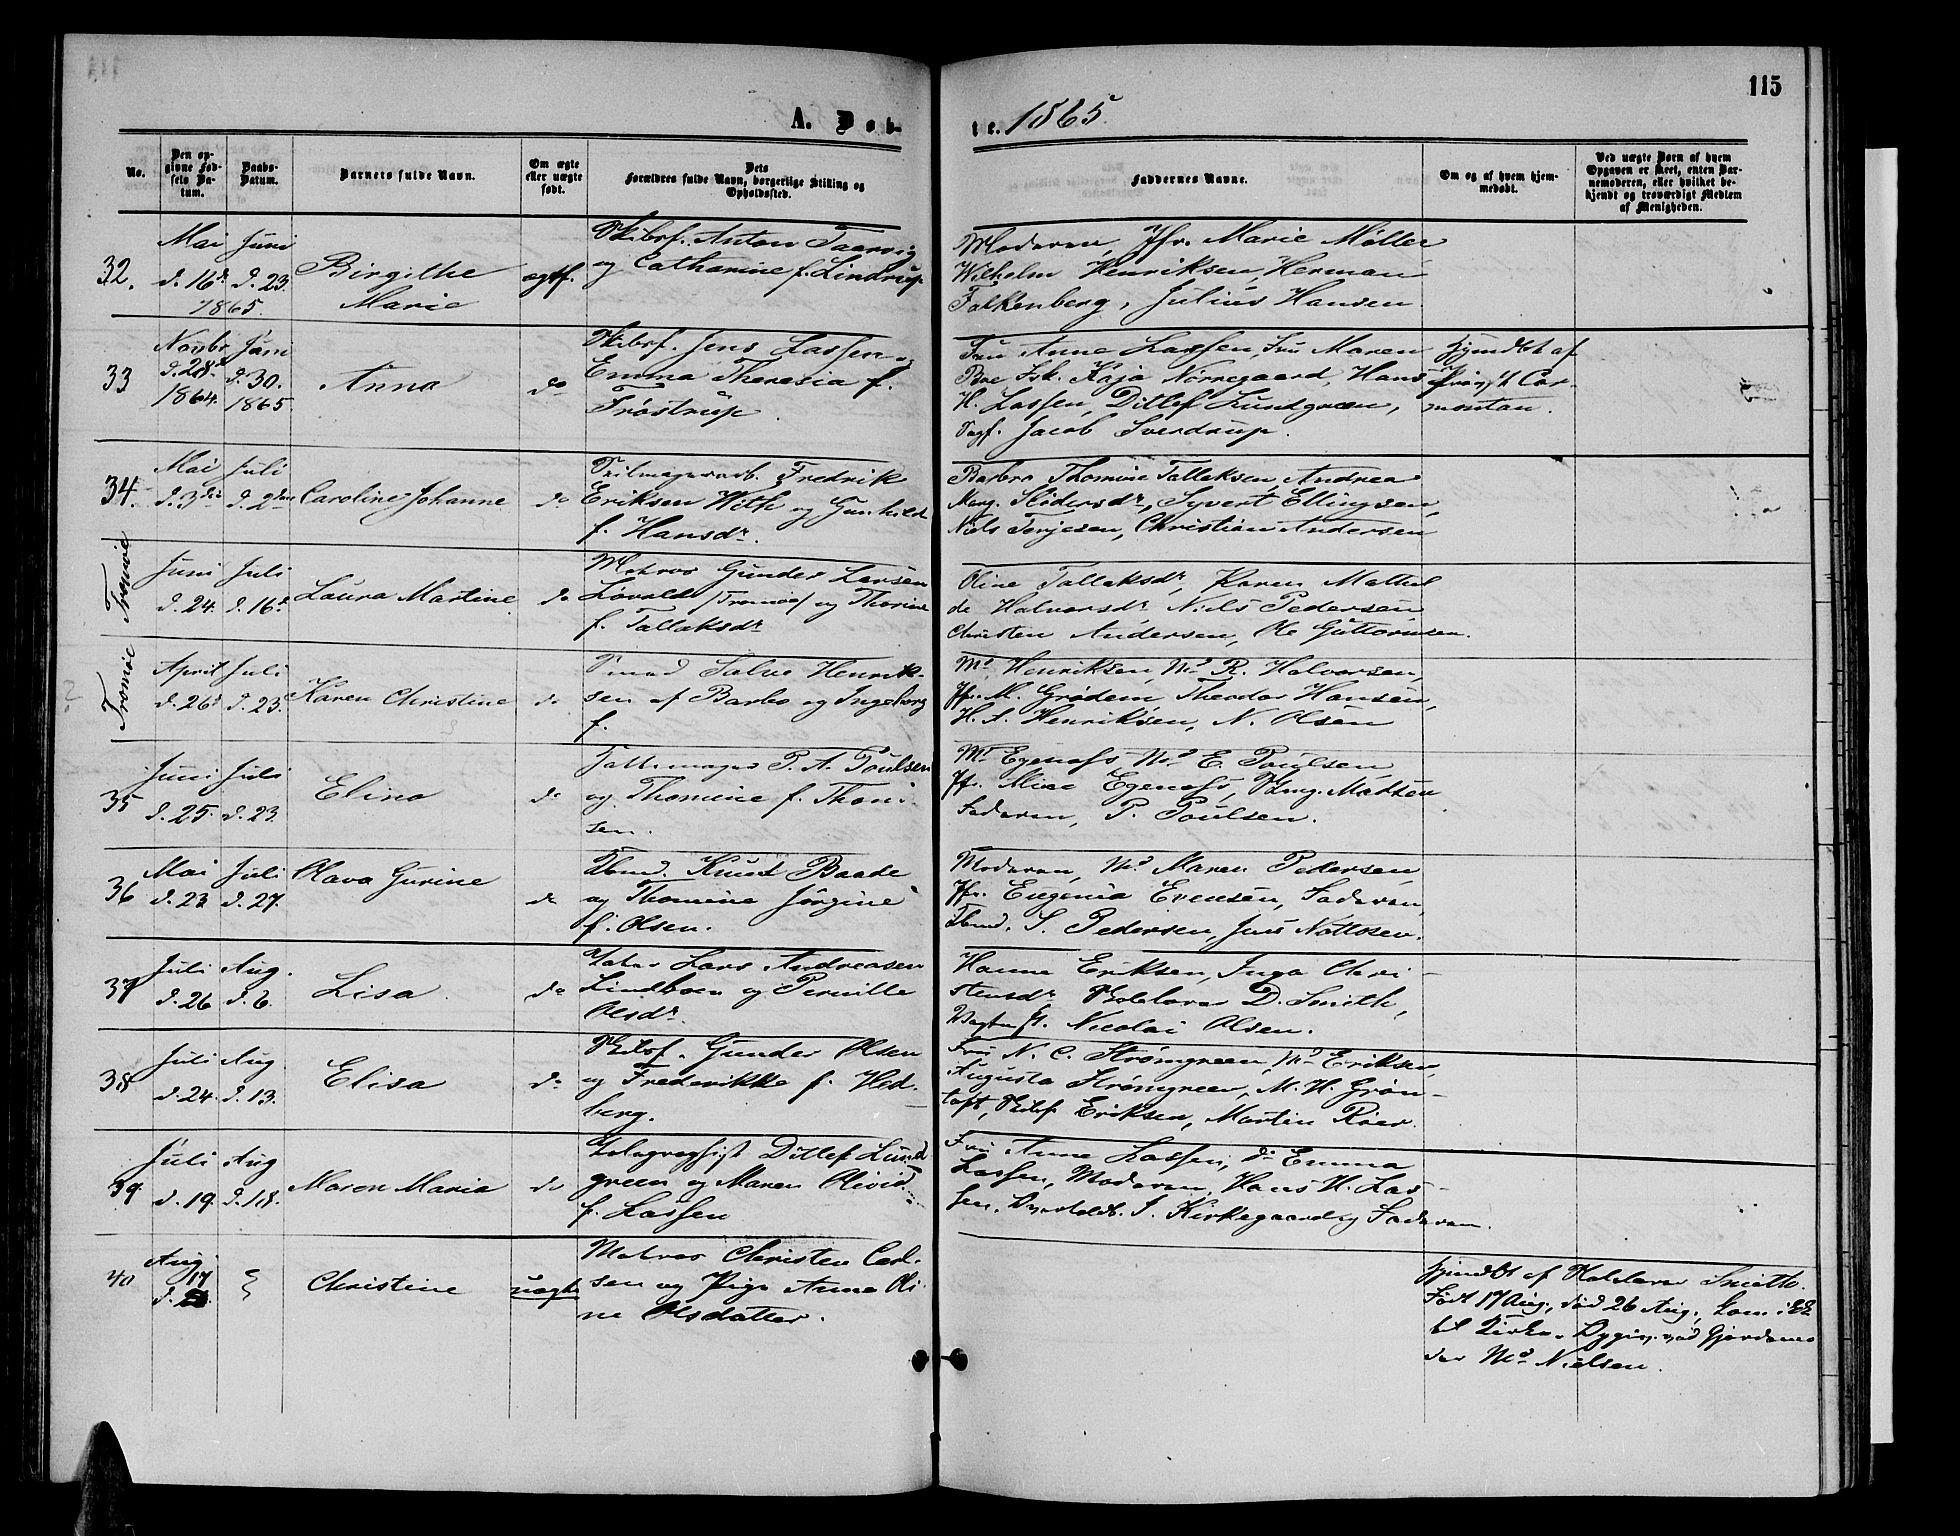 115
A. Døb-
te. 1865.
No.
Den op-
givne Fød-
sels Da-
tum.
Daabs-
Datum.
Barnets fulde Navn.
Om ægte
eller uægte
født.
Dets
Forældres fulde Navn, borgerlige Stilling og
Opholdssted.
Faddernes Navne.
Om og af hvem hjem-
medøbt.
Ved uægte Børn af hvem
Opgaven er skeet, enten Bar-
nemoderen, eller hvilket be-
kjendt og troværdigt Medlem
af Menigheden.
32.
Mai
d. 16d
Juni
d. 23.
1865.
Birgithe
Marie
ægtf.
Skibsf. Anton Taarvig
og Cathrine f. Lindrup
Moderen, Jfr. Marie Møller
Wilhelm Henriksen, Herman
Falkenberg, Julius Hansen.
33
Novbr
d. 28d
1864.
Juni
d. 30.
1865
Anna
do
Skibsf. Jens Lassen og
Emma Theresia f.
Frøstrup.
Fru Anne Lassen, Fru Maren
Boe Frk. Kaja Nørregaard, Hans
H. Lassen, Ditlef Lundgreen,
Jacob Sverdrup.
hjemdbt af
Provst Cor-
montan.
34.
Mai
d. 3die
Juli
d. 2den
Caroline Johanne
do
Fredrik
Eriksen With og Gunhild
f. Hansdr.
Barbro Thomine Tallaksen, Andrea
Marg. Sødersdr, Syvert Ellingsen,
Niels Terjesen, Christian Andersen
Tromøe
Juni
d. 24.
Juli
d. 16d
Laura Martine
do
Matros Gunder Larsen
Løvold (Tromøe) og Thorine
f. Tallaksdr
Oline Tallaksdr, Karen Mathil
de Halvorsdr Niels Pedersen
Christen Andersen, Ole Guttormsen.
Tromøe
April
d. 26d
Juli
d. 23.
Karen Christine
do
Salve Henrik-
sen af Barbo og Ingeborg
f.
Md Henriksen, Md R. Halvorsen,
Jfr. M. Grødem Theodor Hansen,
H. A. Henriksen, N. Olsen
35
Juni
d. 25.
Juli
d. 23.
Elina
do
P. A. Poulsen
og Thomine f. Thom-
sen.
Md Egenæss, Md E. Poulsen
Jfr. Mine Egenæss, Madsen
Faderen, P. Poulsen.
36
Mai
d. 23
Juli
d. 27.
Olava Gurine
do
Tbmd. Knud Baade
og Thomine Jørgine
f. Olsen.
Moderen, Md Maren Pedersen,
Jfr. Eugenia Evensen, Faderen,
Tbmd. S. Pedersen, Jens Nottosen.
37
Juli
d. 26
Aug.
d. 6.
Lisa
do
Lars Andreasen
Lindboen og Pernille
Olsdr.
Hanna Eriksen, Inga Chri-
stensdr, D. Smith,
Nicolai Olsen.
38
Juli
d. 24.
Aug.
d. 13.
Elisa
do
Skibsf. Gunder Olsen
og Frederikke f. Hed-
berg.
Fru N. C. Strømgreen, Md Eriksen,
Augusta Strømgreen, M. H. Grøn-
toft, Skibsf. Eriksen, Martin Röer.
39
Juli
d. 19.
Aug
d. 18.
Maren Maria
do
Telegraphist Ditlef Lund
green og Maren Olivia
f. Lassen
Fru Anne Lassen, do Emma
Lassen, Moderen, Hans H. Las-
sen, J. Kirkegaard og Faderen.
40
Aug
17
d.
Christine
uægte
Matros Christen Carl-
sen og Pige Anne Oli-
ne Olsdatter.
hjemdbt af Smith.
Født 17 Aug., død 26 Aug., Kom i
til Kirke. Gjordemo
der Md Nielsen.